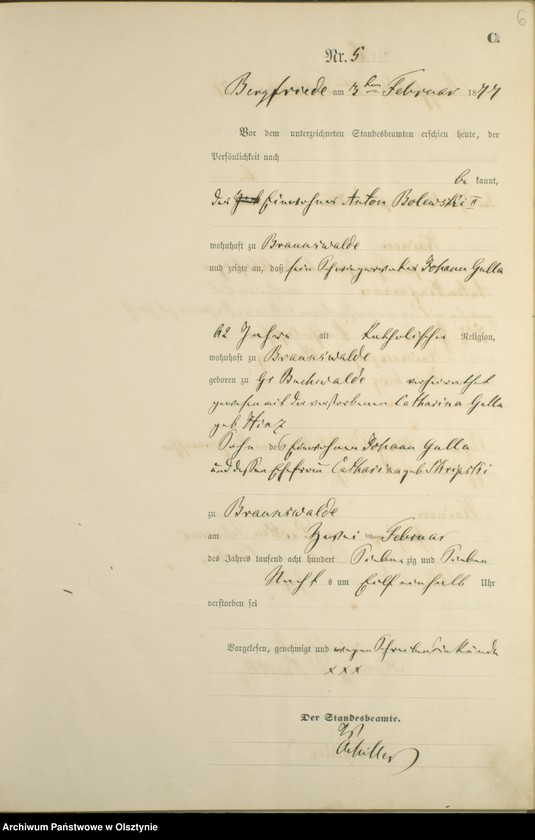 6
C.
Nr. 5
Bergfriede am 3ten Februar 1877
Vor dem unterzeichneten Standesbeamten erschien heute, der
Persönlichkeit nach
be kannt,
der Einwohner Anton Bolewski II
wohnhaft zu Braunswalde
und zeigte an, daß sein Schwiegervater Johann Galla
62 Jahre alt katholischer Religion,
wohnhaft zu Braunswalde
geboren zu Gr Buchwalde verheirathet
gewesen mit der verstorbenen Catharina Galla
geb Hinz
Sohn des Einwohners Johann Galla
und dessen Ehefrau Catharina geb Skripski
zu Braunswalde
am Zwei Februar
des Jahres tausend acht hundert Sieben zig und Sieben
Nachts um Eilf einhalb Uhr
verstorben sei
Vorgelesen, genehmigt und wegen Schreibensunkunde
x x x
Der Standesbeamte.